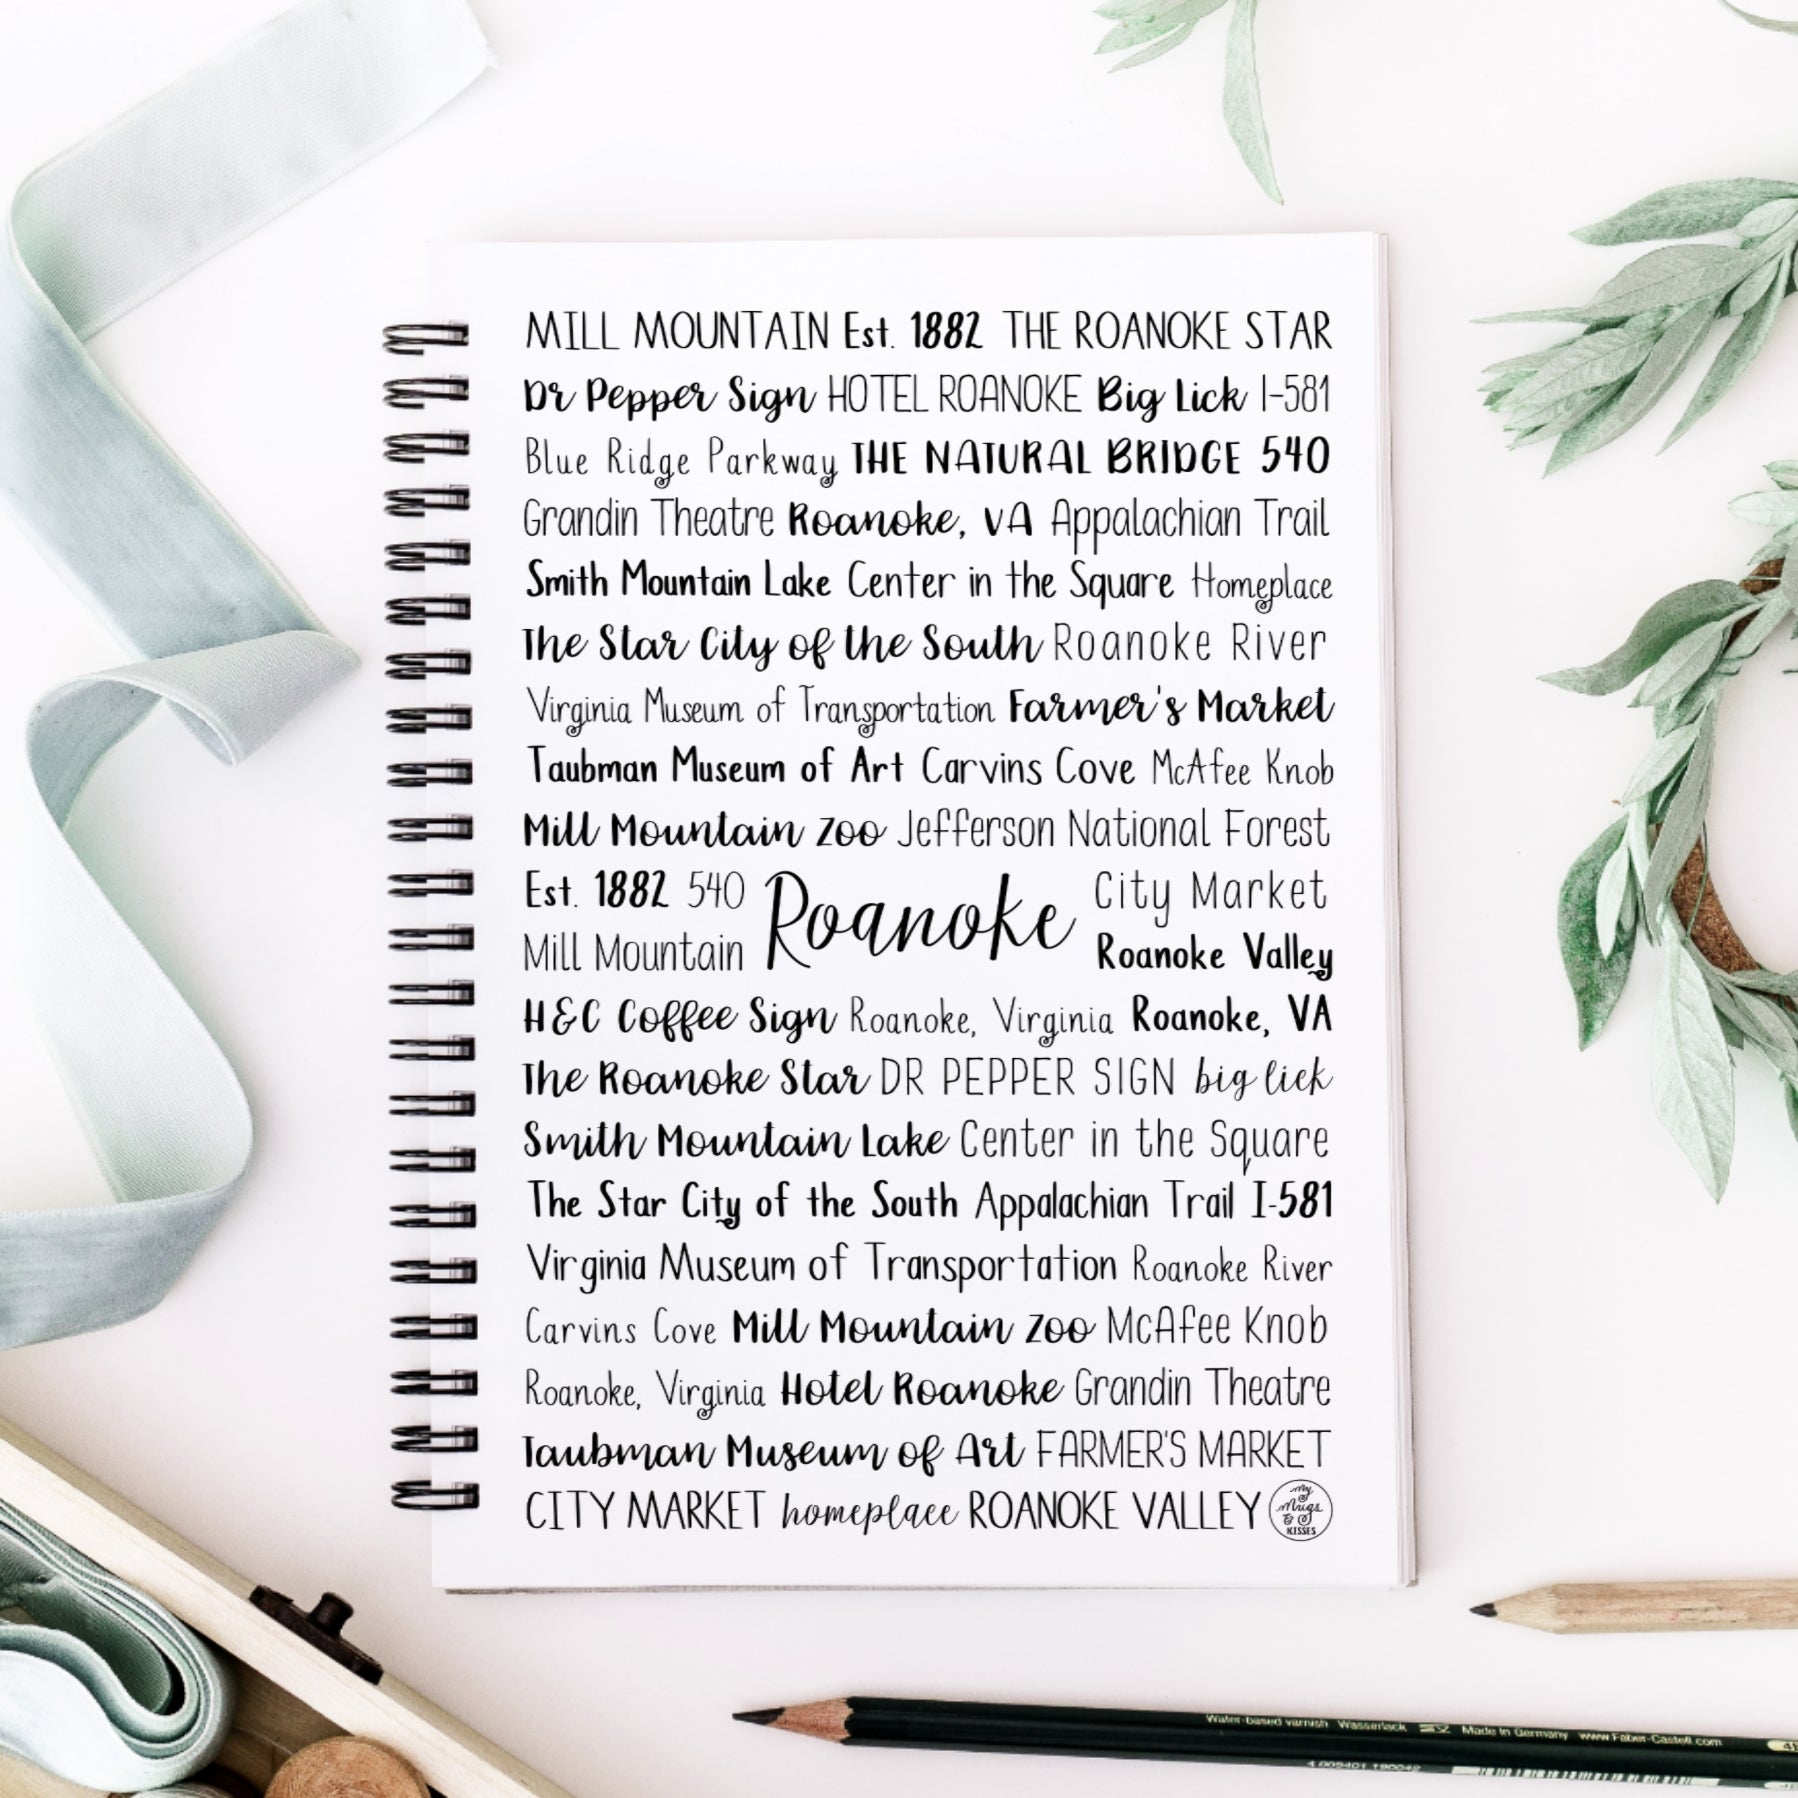 MILL MOUNTAIN Est. 1882 THE ROANOKE STAR
Dr Pepper Sign HOTEL ROANOKE Big Lick I-581
Blue Ridge Parkway THE NATURAL BRIDGE 540
Grandin Theatre Roanoke, VA Appalachian Trail
Smith Mountain Lake Center in the Square Homeplace
The Star City of the South Roanoke River
Virginia Museum of Transportation Farmer's Market
Taubman Museum of Art Carvins Cove McAfee Knob
Mill Mountain Zoo Jefferson National Forest
Est. 1882 540
Mill Mountain
Roanoke
City Market
Roanoke Valley
H&C Coffee Sign Roanoke, Virginia Roanoke, VA
The Roanoke Star DR PEPPER SIGN big lick
Smith Mountain Lake Center in the Square
The Star City of the South Appalachian Trail I-581
Virginia Museum of Transportation Roanoke River
Carvins Cove Mill Mountain Zoo McAfee Knob
Roanoke, Virginia Hotel Roanoke Grandin Theatre
Taubman Museum of Art FARMER'S MARKET
CITY MARKET homeplace ROANOKE VALLEY
My
Mugs
&
KISSES
Water-based varnish Wasserlack Made in Germany www.Faber-Castell.com
4 005401 190042